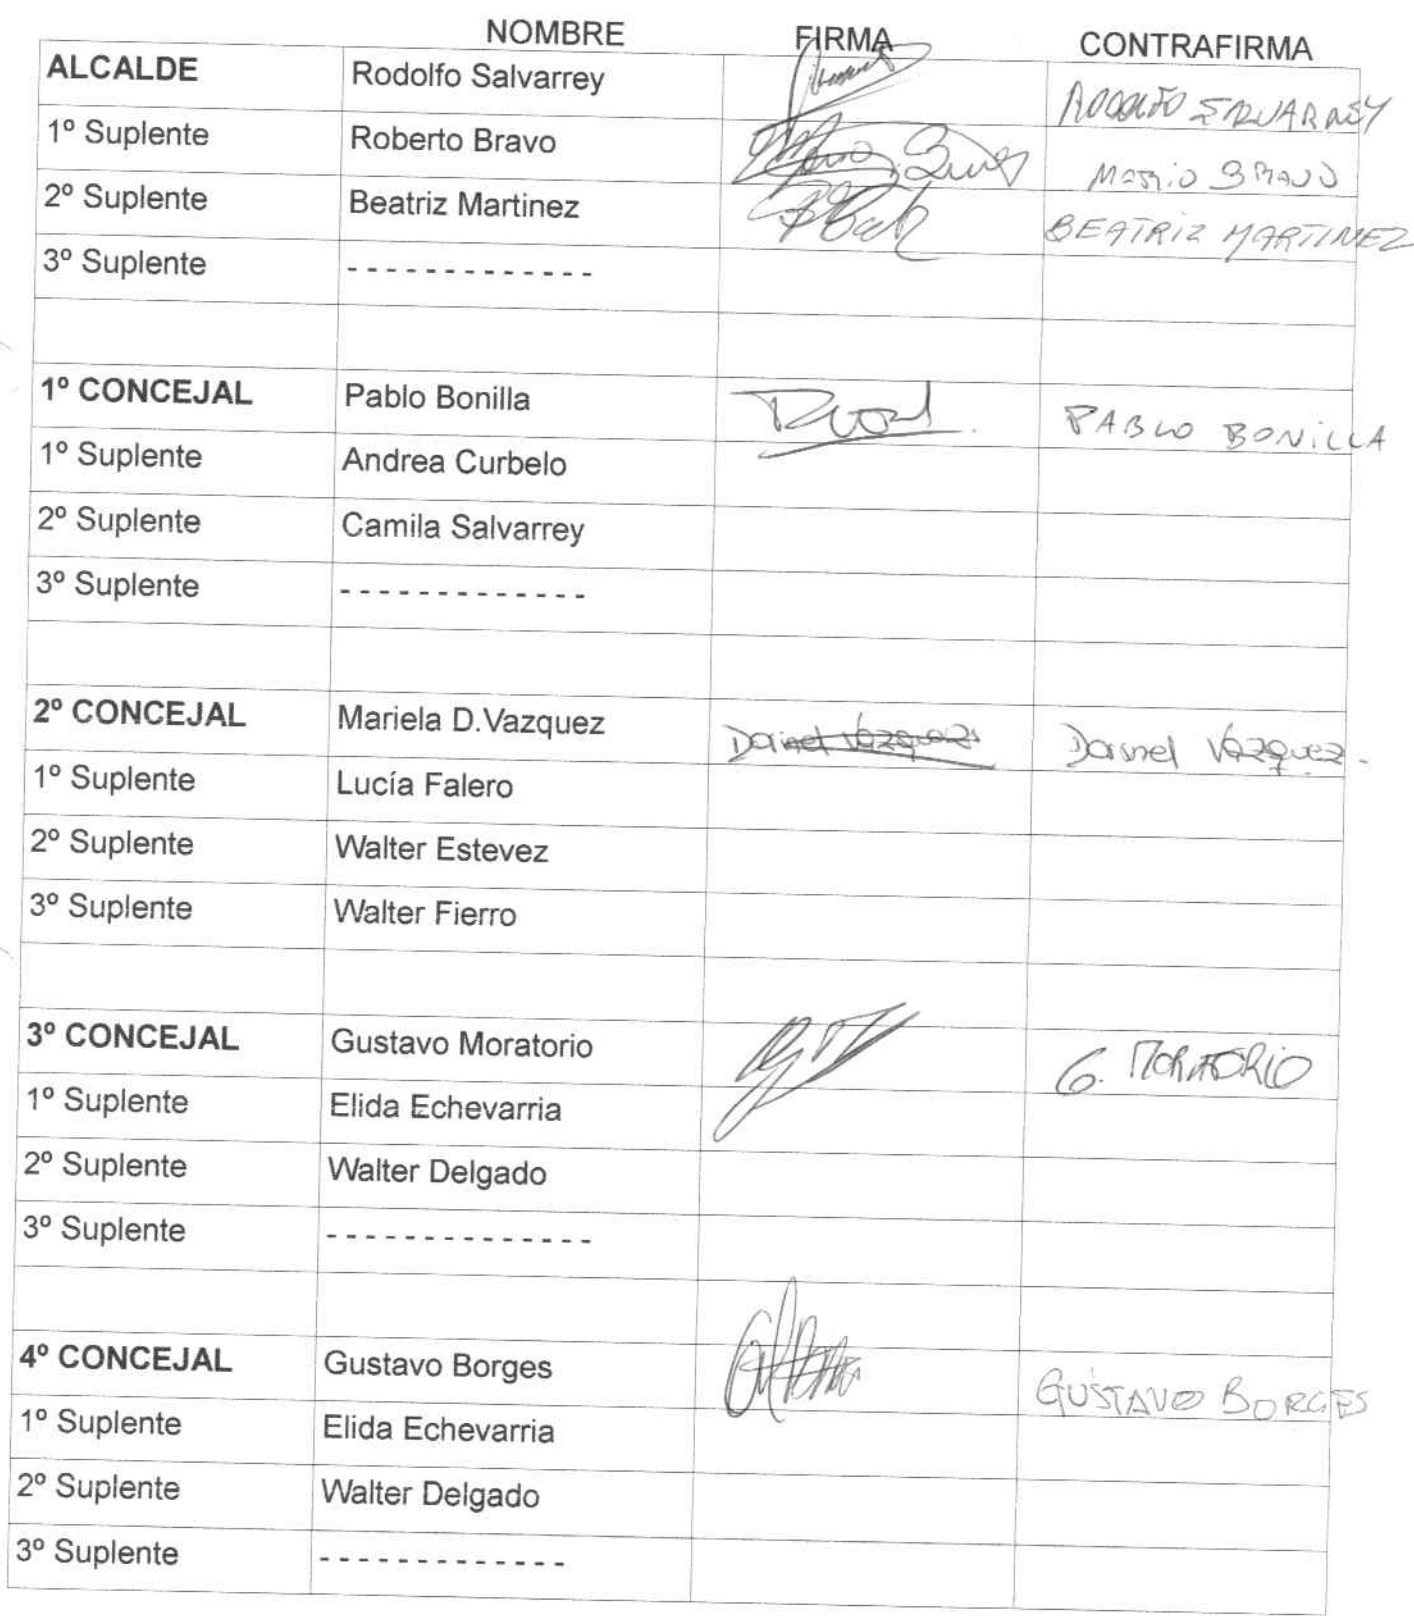 NOMBRE FIRMA CONTRAFIRMA
ALCALDE Rodolfo Salvarrey RODOLFO SALVARREY
1º Suplente Roberto Bravo Bravo
2º Suplente Beatriz Martinez BEATRIZ MARTINEZ
3º Suplente - - - - - - - - - - - - -
1º CONCEJAL Pablo Bonilla PABLO BONILLA
1º Suplente Andrea Curbelo
2º Suplente Camila Salvarrey
3º Suplente - - - - - - - - - - - - -
2º CONCEJAL Mariela D.Vazquez Vazquez Vazquez.
1º Suplente Lucía Falero
2º Suplente Walter Estevez
3º Suplente Walter Fierro
3º CONCEJAL Gustavo Moratorio G. MORATORIO
1º Suplente Elida Echevarria
2º Suplente Walter Delgado
3º Suplente - - - - - - - - - - - - - -
4º CONCEJAL Gustavo Borges GUSTAVO BORGES
1º Suplente Elida Echevarria
2º Suplente Walter Delgado
3º Suplente - - - - - - - - - - - - -